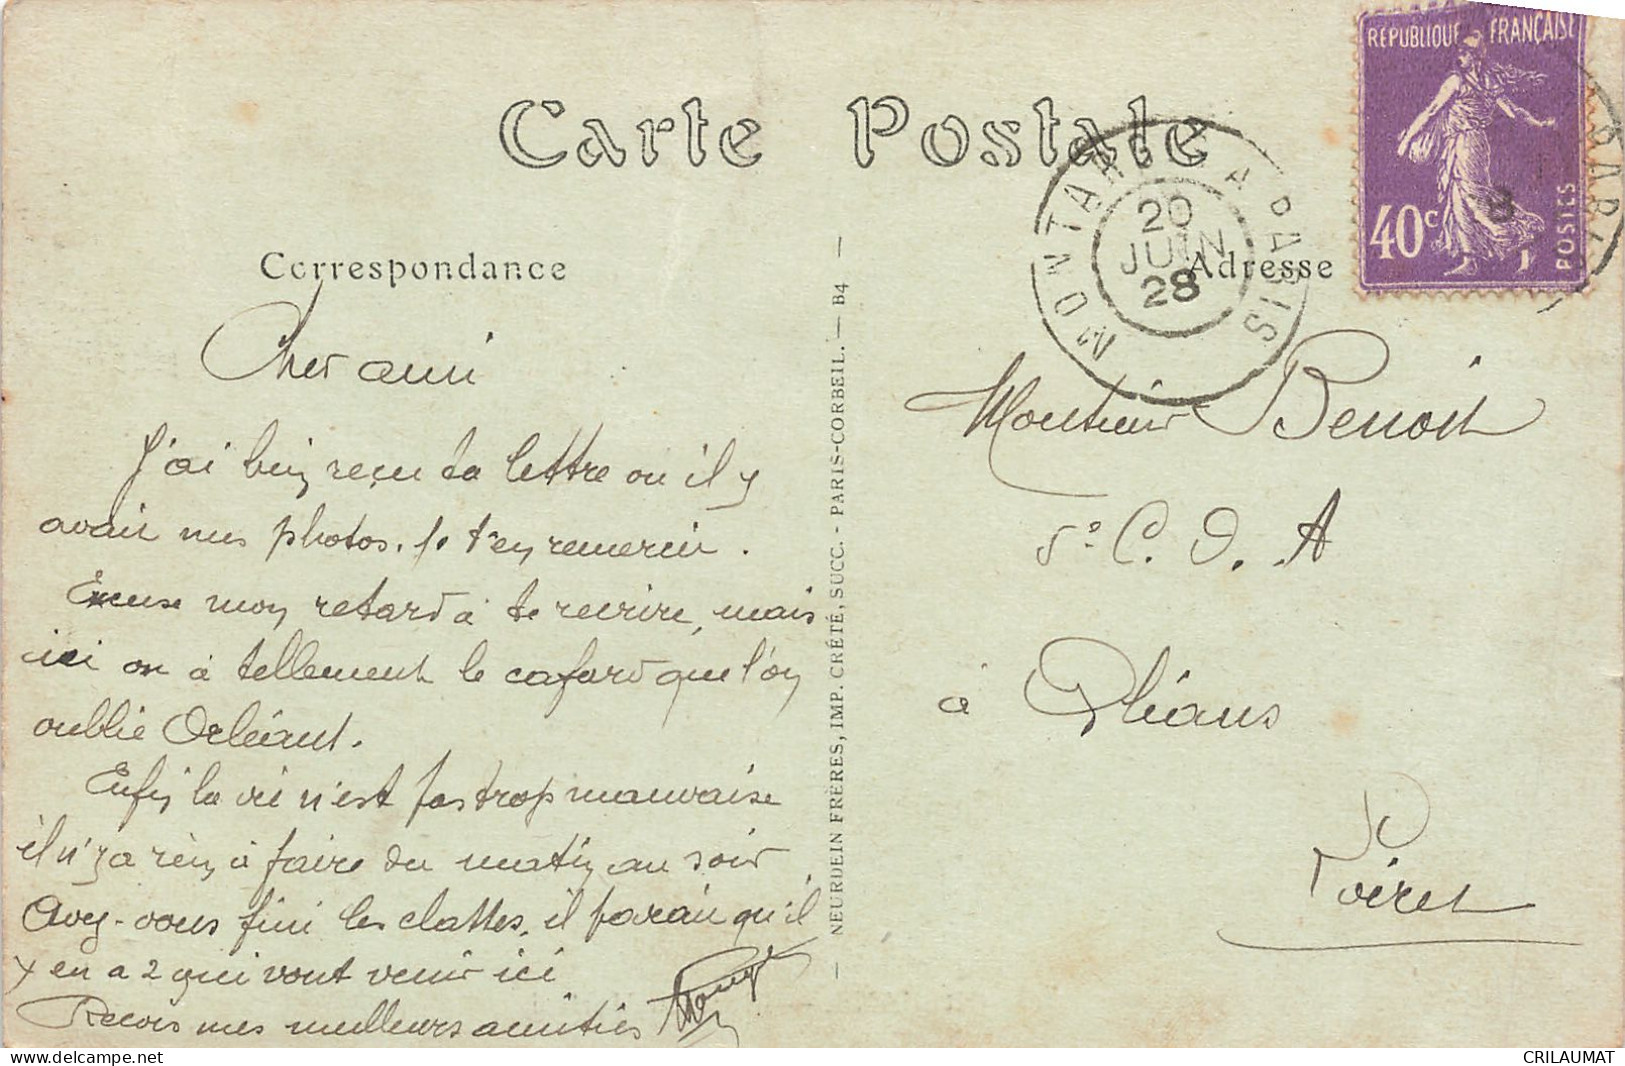 Carte Postale
RÉPUBLIQUE FRANÇAISE
40c
POSTES
MONTARGIS A PARIS
20
JUIN
28
Correspondance
Adresse
Cher ami
J'ai bien reçu ta lettre ou il y
avait mes photos. Je t'en remercie.
Excuse mon retard à te récrire, mais
ici on à tellement le cafard que l'on
oublie Orléans.
Enfin la vie n'est pas trop mauvaise
il n'y a rien à faire du matin au soir
Avez-vous fini les classes, il parait qu'il
y en a 2 qui vont venir ici
Recois mes meilleurs amitiés
NEURDEIN FRÈRES, IMP. CRÉTÉ, SUCC. - PARIS-CORBEIL. — B4 —
Monsieur Benoit
5e C. O. A
à Orléans
Loiret
CRILAUMAT